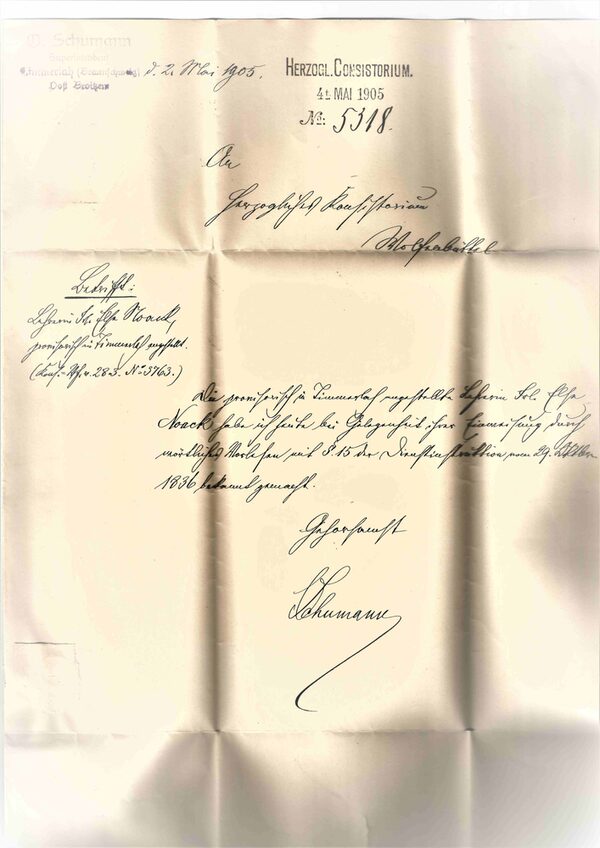 G. Schumann
Superintendent
Timmerlah (Braunschweig)
Post Broitzem
d. 2. Mai 1905.
HERZOGL. CONSISTORIUM.
4. MAI 1905
No: 5318.
An
Herzogliches Konsistorium
Wolfenbüttel
Betrifft:
Lehrerin Frl. Else Noack,
provisorisch in Timmerlah angestellt.
(Kons.-Vfg. v. 28 3. No 3763.)
Die provisorisch in Timmerlah angestellte Lehrerin Frl. Else
Noack habe ich heute bei Gelegenheit ihrer Einweisung durch
wörtliches Vorlesen mit § 15 der Dienstinstruktion vom 29. Oktbr
1836 bekannt gemacht.
Gehorsamst
Schumann